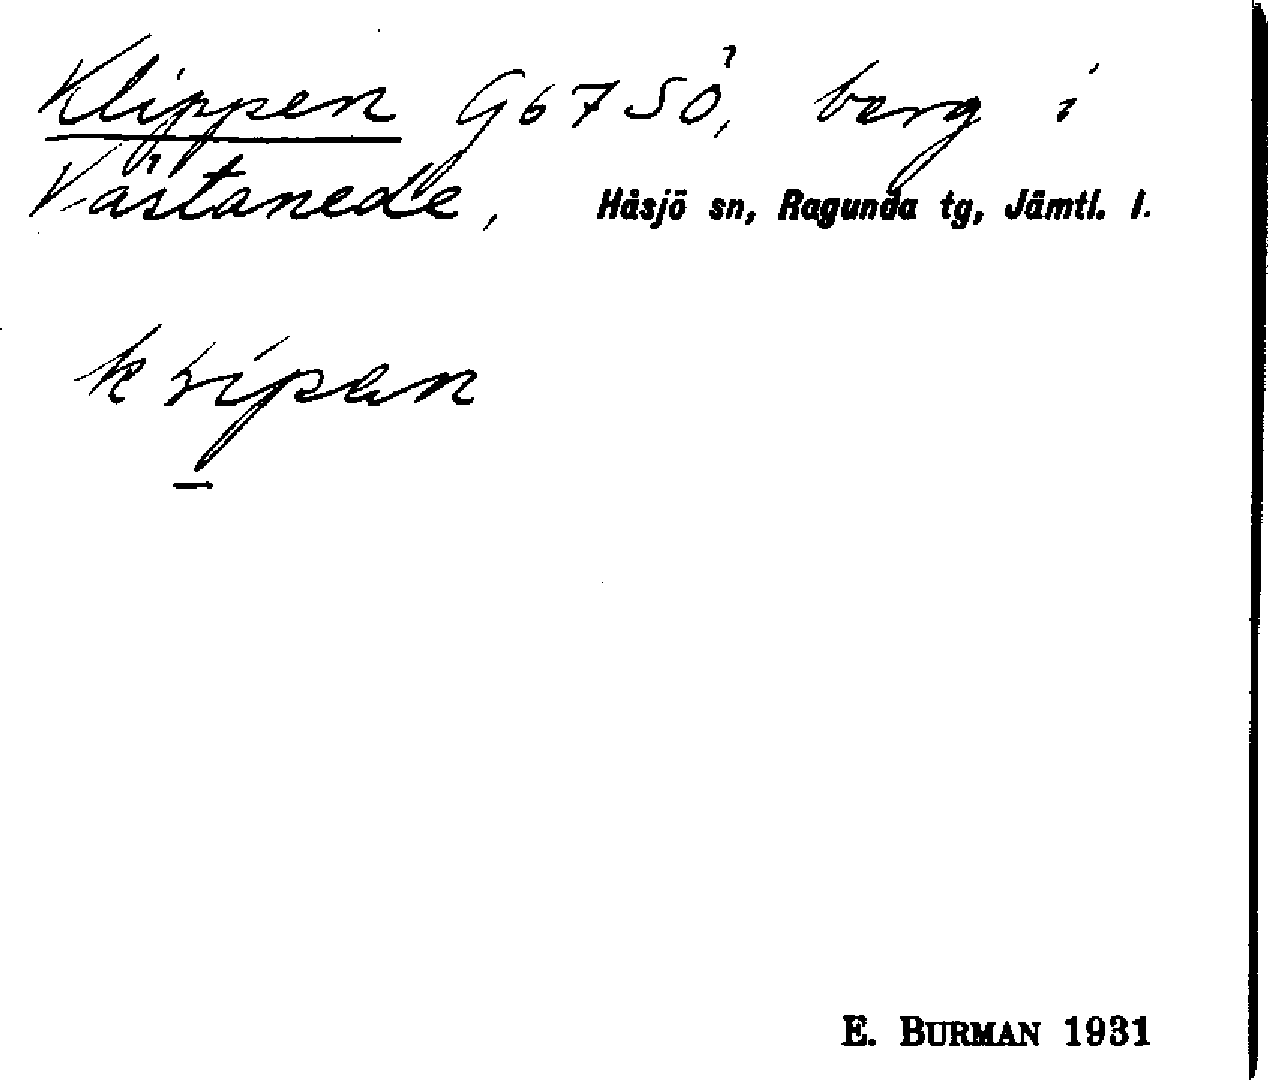 Klippen G67SÖ?, berg i
Västanede, Håsjö sn, Ragunda tg, Jämtl. l.
E. BURMAN 1931